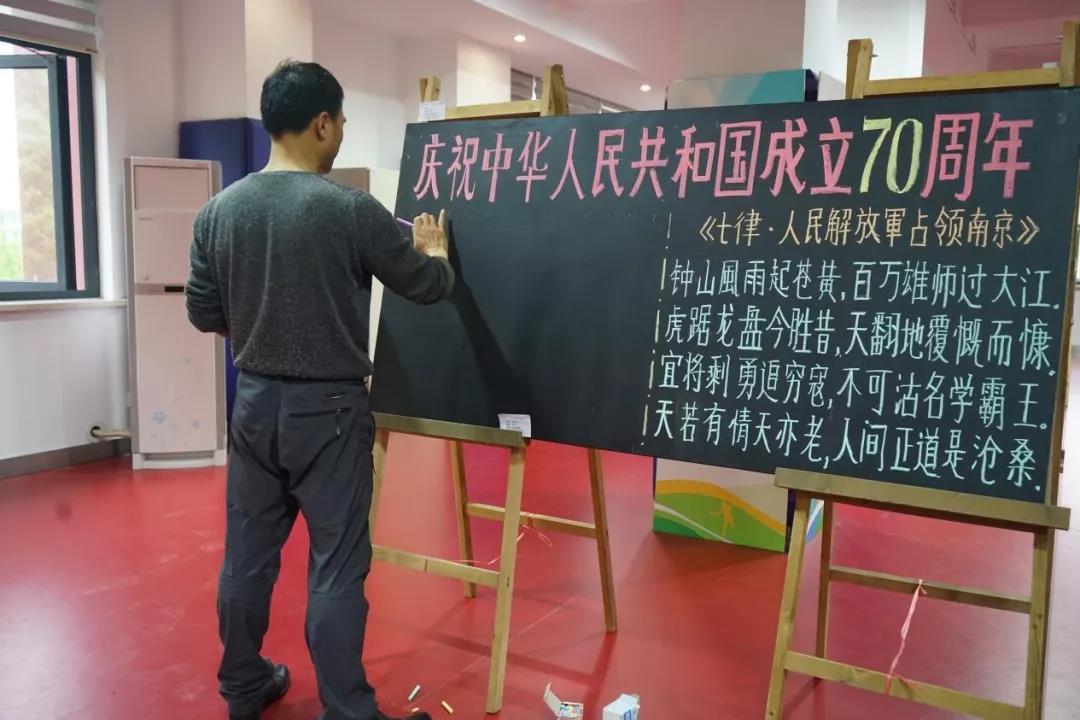 庆祝中华人民共和国成立70周年
《七律·人民解放軍占领南京》
钟山風雨起苍黄,百万雄师过大江.
虎踞龙盘今胜昔,天翻地覆慨而慷.
宜将剩勇追穷寇,不可沽名学霸王.
天若有情天亦老,人间正道是沧桑.